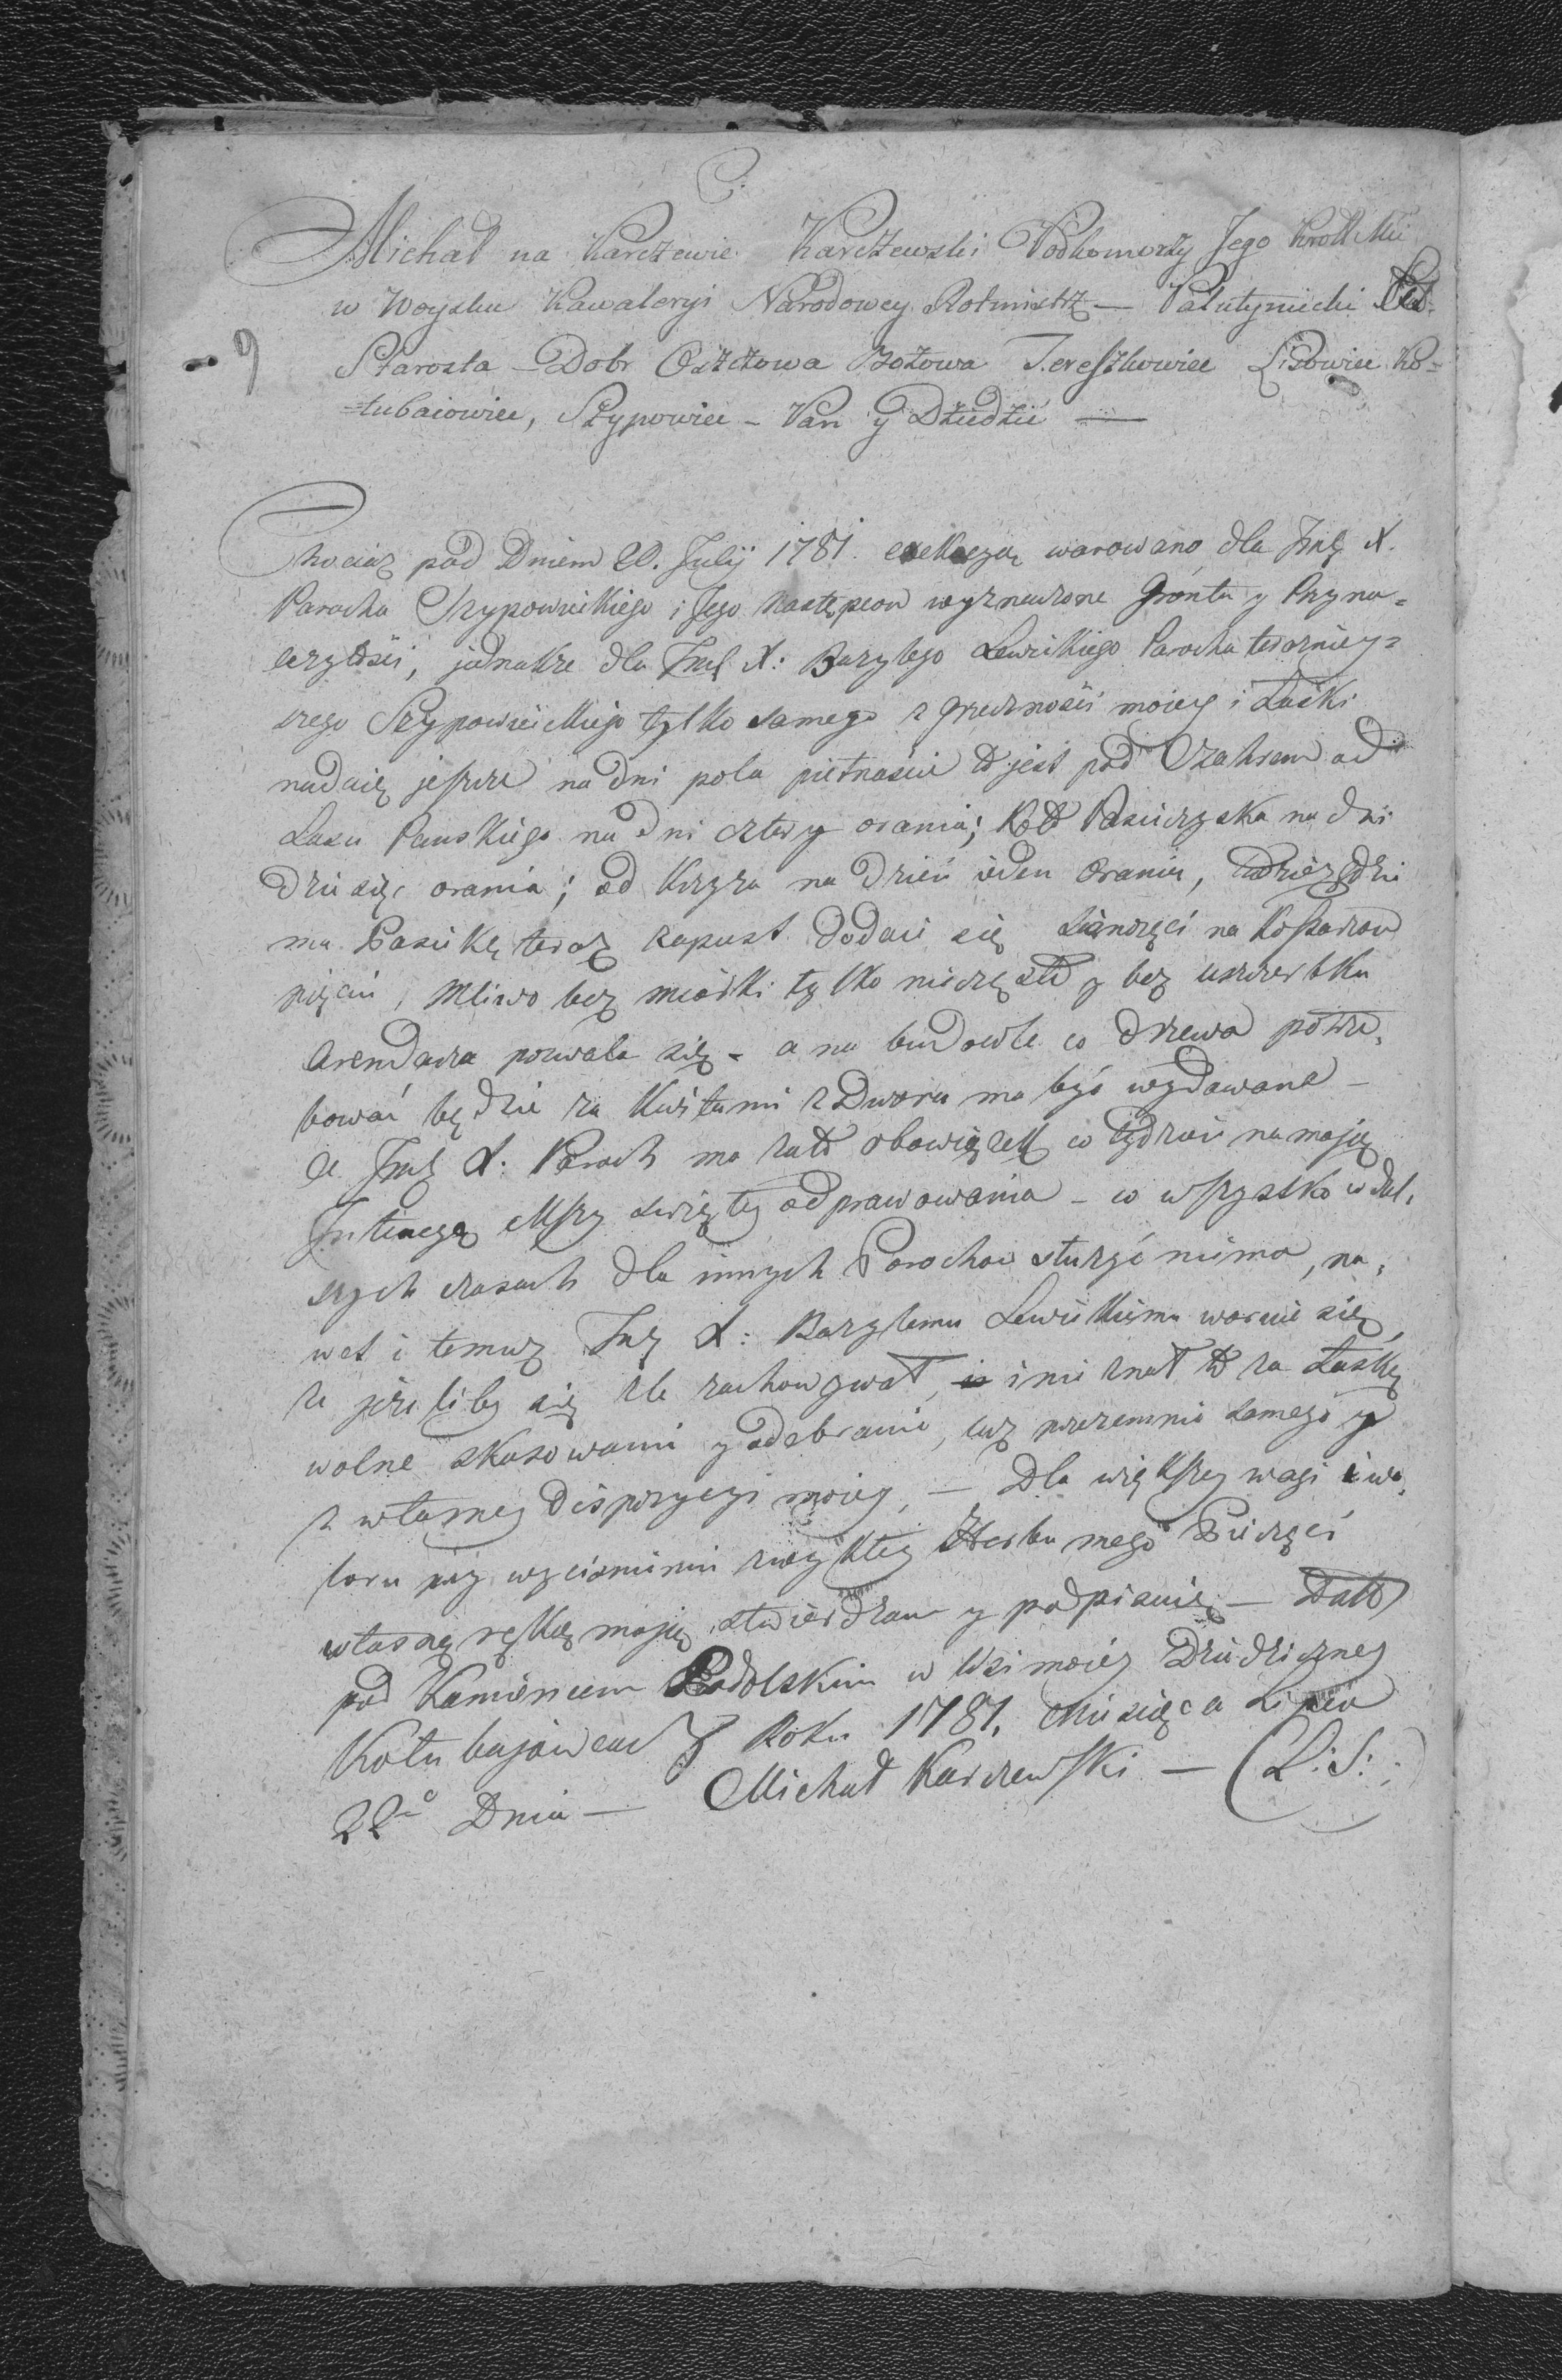 Michał na Karczewie Karczewski Podkomorzy Jego Krolk Mci
w Woysku Kawaleryi Narodowey Rotmistrz — Pałutyniecki
9
Starosta — Dobr Bożowa Tereszkowiec Lisowiec Ko=
=łubaiowiec, Szypowiec — Pan y Dziedzic —
Chociaż pod Dniem 20. Julij 1781. erekcyą warowano dla Jmę X.
Parocha Szypowieckiego i Jego Następcow wyznaczone Gronta y Przyna=
leżytości, jednakże dla Jmę X: Bazylego Lewickiego Parocha teraźniey=
szego Szypowieckiego tylko samego z grzeczności moiey i Łaski
nadaię jeszcze na Dni pola pietnaście to jest pod od
Lasu Pańskiego na Dni cztery orania; Pasieczyska na dni
Dziesięć orania; od Krzyża na Dzień ieden Orania, gdzie
ma Pasikę teraz zapust dodaie się Sianożęci na Kosarzow
pięciu, Mliwo bez miarki tylko nieczęsto y bez uszczerbku
Arendarza pozwala się — a na budowle co drzewa potrze,
bować będzie za Kwitami z Dworu ma być wydawane —
a Jmę X: Paroch ma za to obowiązek co tydzień na moię
Intencyą Mszy świętey odprawowania — co wszystko w dal,
szych czasach dla innych Parochow służyć nie ma, na,
wet i temuż Jmę X: Bazylemu Lewickiemu waruie się
że jeżeliby się źle zachowywał, i nie znał to za Łaskę
wolne skasowanie y odebranie, lecz przezemnie samego y
z własney Disposycyi moiey, — Dla większey wagi i wa,
loru przy wyciśnieniu zwykłey Herbu mego Pieczęci
własną ręką moią stwierdzam y podpisuię — Dat
pod Kamieńcem Podolskim w Wsi moiey Dziedziczney
Kołubajowcach Roku 1781. Miesiąca Lipca
22º Dnia — Michał Karczewski — (L:S:)